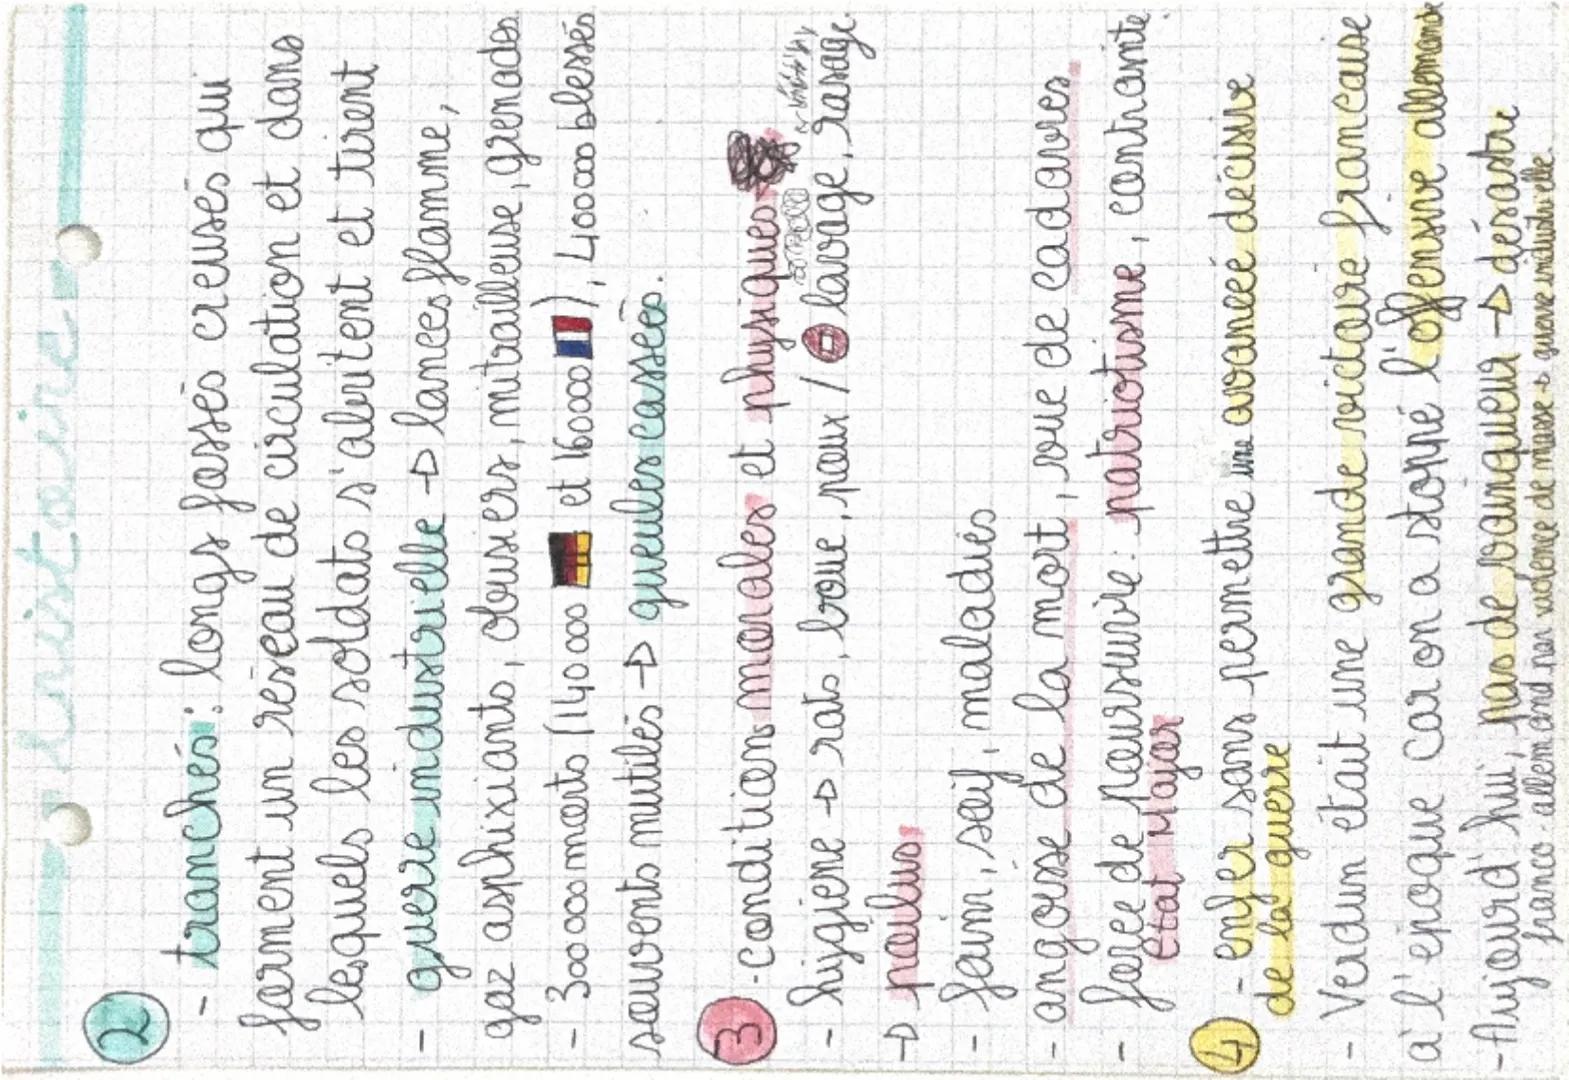 histoire
2
- tranchés: longs fossés creusés qui
forment un réseau de circulation et dans
lesquels les soldats s'abritent et tirent
- guerre industrielle → lances flamme,
gaz asphixiants, obusiers, mitrailleuse, grenades
- 300 000 morts (140 000 et 160000), 400000 blessés
souvents mutilés → gueules cassées.
3 - conditions morales et physiques
- higiene → rats, boue, poux / lavage, rasage.
→ poilus,
- faim, soif, maladies
- angoisse de la mort, vue de cadavres.
- forcé de poursuivre : patriotisme, contrainte
état Major
4 - enfer sans permettre une avancée décisive
de la guerre
- Verdun était une grande victoire francause
à l'époque car on a stoppé l'offensive allemande
- Aujourd'hui, pas de vainqueur → désastre
franco-allemand par violence de masse → guerre industrielle.